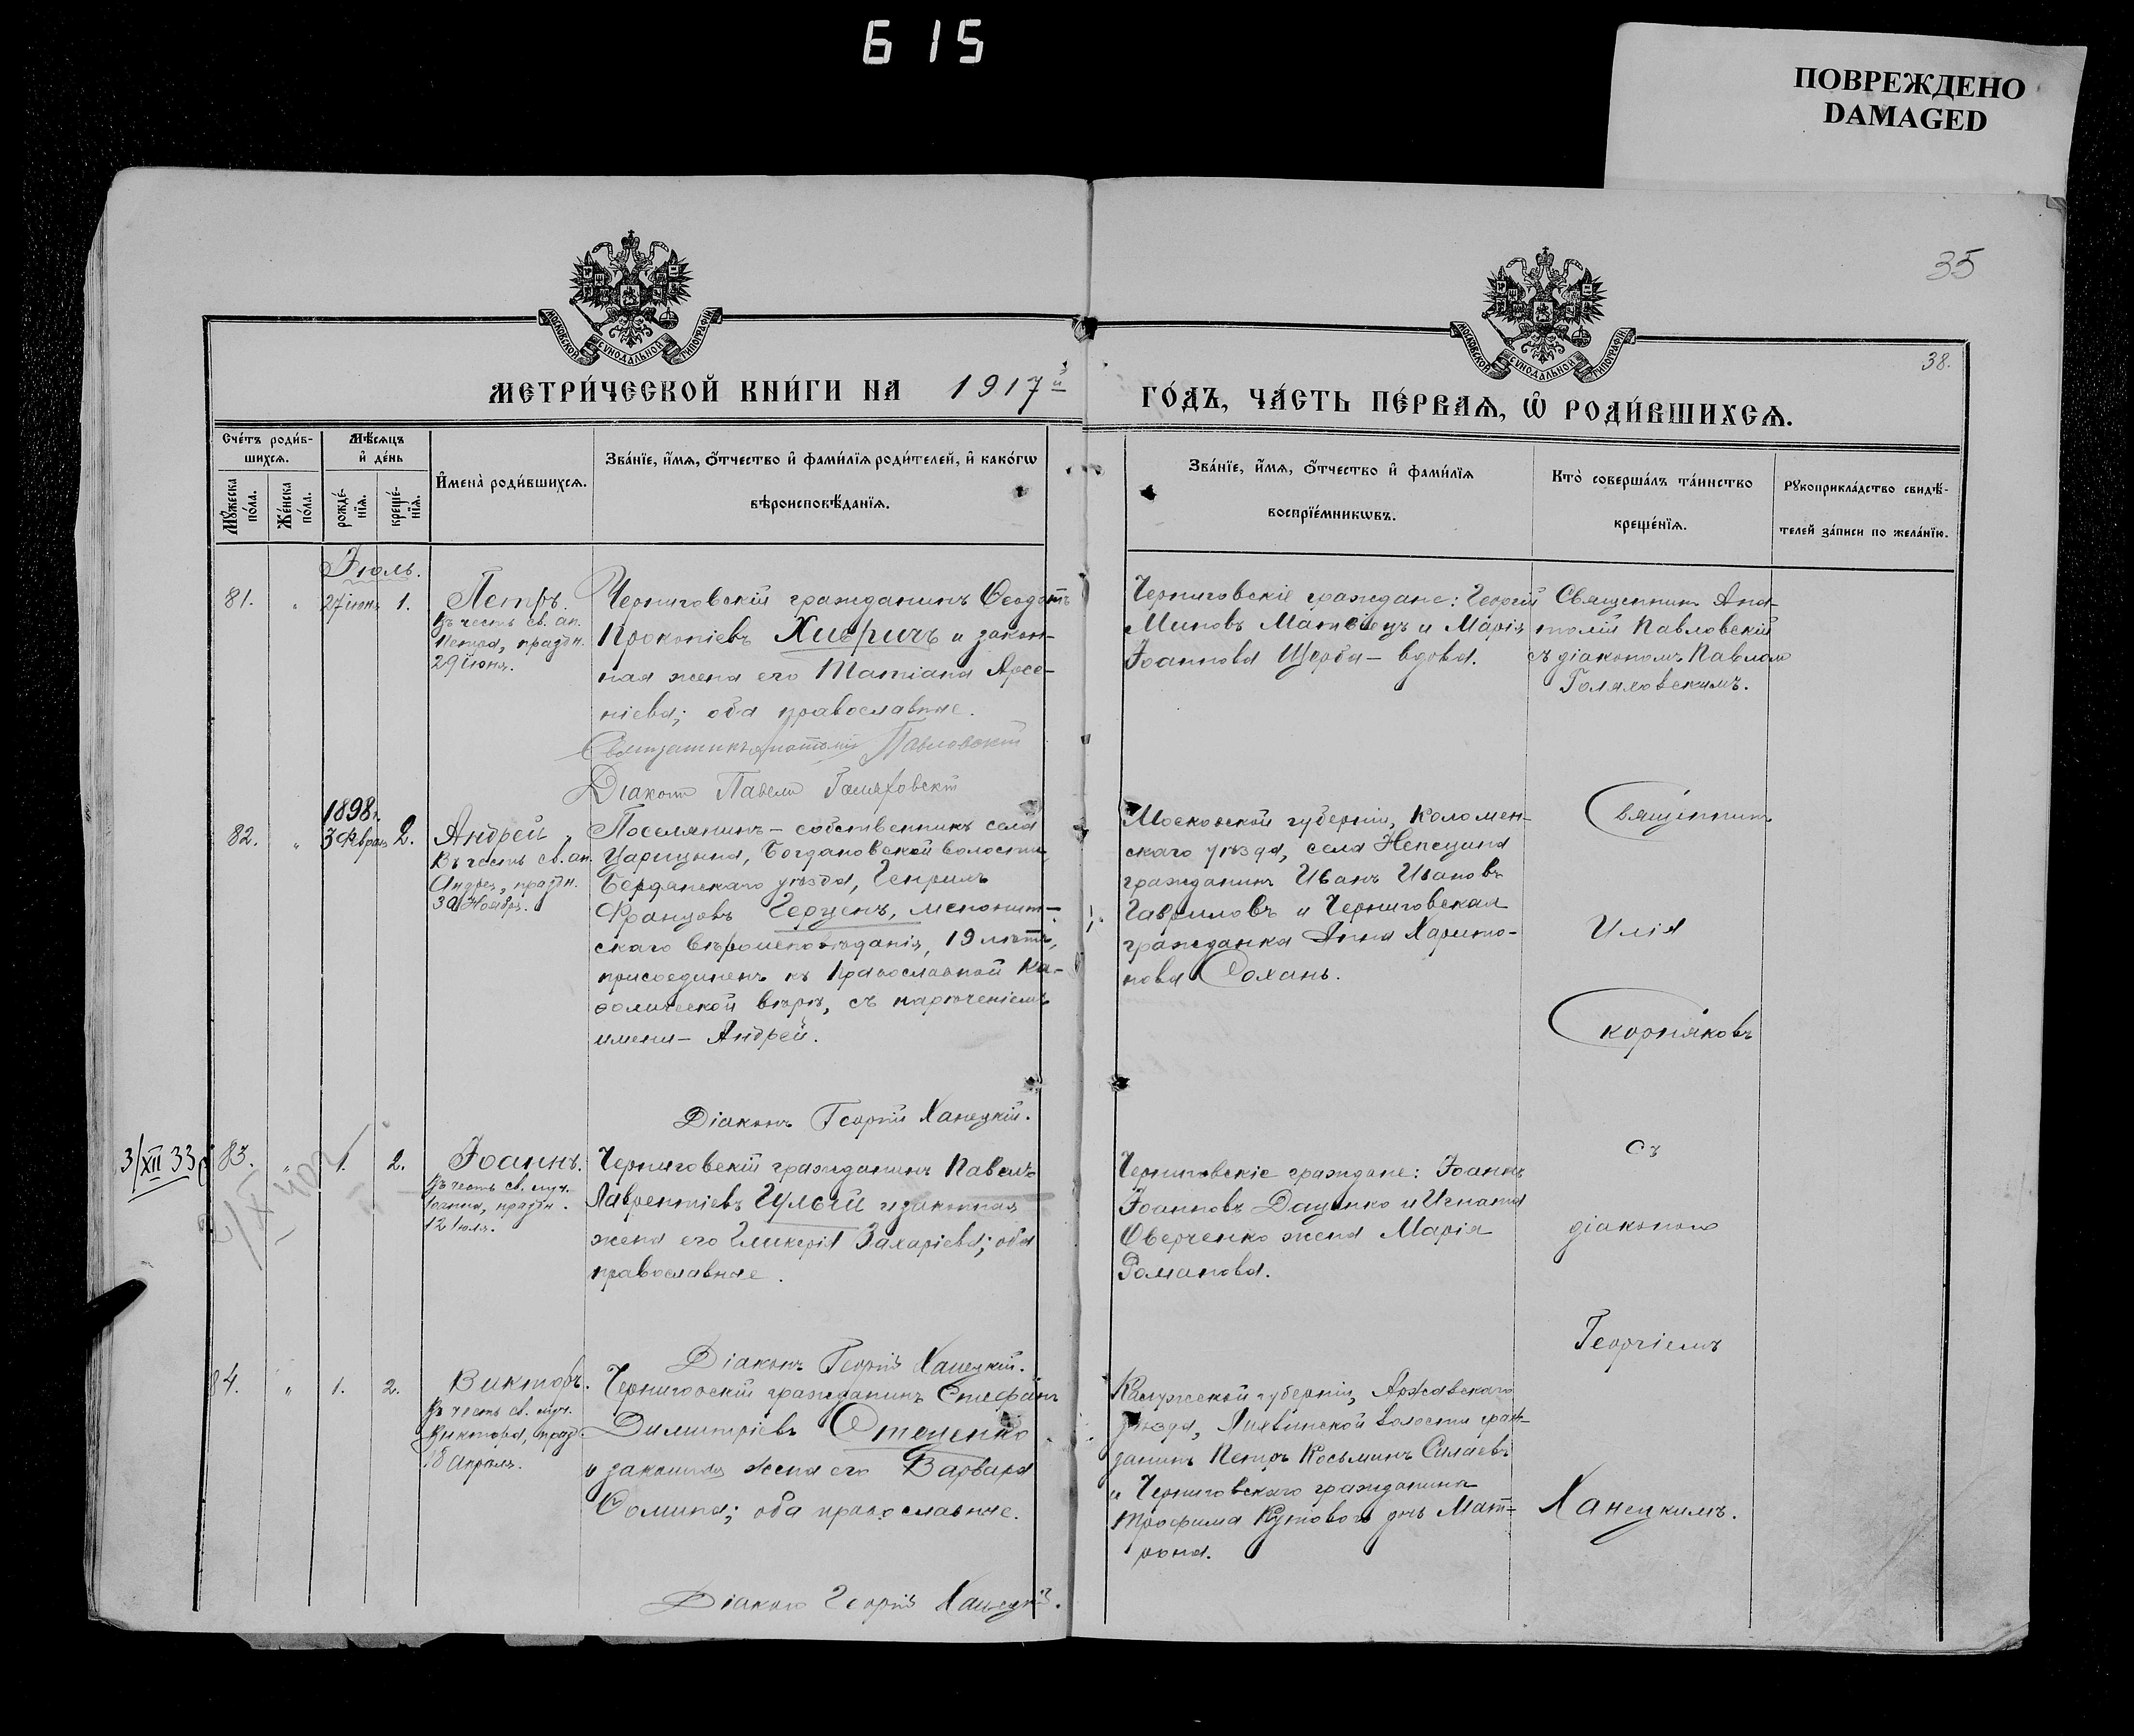 615
ПОВРЕЖДЕНО
DAMAGED
35
38.
МОСКОВСКОЙ СѴНОДАЛЬНОЙ ТИПОГРАФІИ
МОСКОВСКОЙ СѴНОДАЛЬНОЙ ТИПОГРАФІИ
МЕТРИ́ЧЕСКОЙ КНИ́ГИ НА 1917й
ГО́ДЪ, ЧА́СТЬ ПЕ́РВАѦ, Ѡ҆ РОДИ́ВШИХСѦ.
Сче́тъ роди́в-
шихсѧ.
Мѣ́сѧцъ
и҆ де́нь
И҆мена̀ роди́вшихсѧ.
Зва́нїе, и҆́мѧ, ѻ҆́тчество и҆ фами́лїѧ роди́телей, и҆ како́гѡ
вѣроисповѣ́данїѧ.
Мꙋ́жеска по́ла.
Же́нска по́ла.
рожде́-
нїѧ.
креще́-
нїѧ.
Зва́нїе, и҆́мѧ, ѻ҆́тчество и҆ фами́лїѧ
воспрїе́мникѡвъ.
Кто̀ соверша́лъ та́инство
креще́нїѧ.
Рꙋкоприкла́дство свидѣ́-
телей за́писи по жела́нїю.
Іюль.
81. " 27 іюня 1.
Петръ.
Въ честь св. ап.
Петра, праздн.
29 іюня.
Черниговскій гражданинъ Ѳеодотъ
Прокопіевъ Хивричъ и закон-
ная жена его Татіана Арсе-
ніева; оба православные.
Священникъ Анатолій Павловскій
Діаконъ Павелъ Голяховскій
Черниговскіе граждане: Георгій
Миновъ Матвіецъ и Марія
Іоаннова Щерба - вдова.
Священникъ Ана-
толій Павловскій
съ діакономъ Павломъ
Голяховскимъ.
1898г.
82. " 3 Февраля 2.
Андрей.
Въ честь св. ап.
Андрея, праздн.
30 Ноября.
Поселянинъ - собственникъ села
Царицына, Богдановской волости,
Бердянскаго уѣзда, Генрихъ
Францовъ Герценъ, менонит-
скаго вѣроисповѣданія, 19 лѣтъ,
присоединенъ къ Православной Ка-
ѳолической вѣрѣ, съ нареченіемъ
имени - Андрей.
Діаконъ Георгій Ханецкій.
Московской губерніи, Коломен-
скаго уѣзда, села Непецина
гражданинъ Иванъ Ивановъ
Гавриловъ и Черниговская
гражданка Анна Харито-
нова Сохань.
Священникъ
Илія
Скорняковъ
съ
діакономъ
Георгіемъ
Ханецкимъ.
3/XII 33г
83. " 1. 2.
Іоаннъ.
Въ честь св. муч.
Іоанна, праздн.
12 Іюля.
Черниговскій гражданинъ Павелъ
Лаврентіевъ Гулый и законная
жена его Гликерія Захаріева; оба
православные.
Діаконъ Георгій Ханецкій.
Черниговскіе граждане: Іоаннъ
Іоанновъ Даценко и Игната
Оверченко жена Марія
Романова.
84. " 1. 2.
Викторъ.
Въ честь св. муч.
Виктора, празд.
18 Апрѣля.
Черниговскій гражданинъ Стефанъ
Димитріевъ Стеценко
и законная жена его Варвара
Ѳомина; оба православные.
Діаконъ Георгій Ханецкій.
Калужской губерніи,
уѣзда, Лихвинской волости граж-
данинъ Петръ Косьминъ Силаевъ
и Черниговскаго гражданина
Трофима Кутового дочь Мат-
рона.